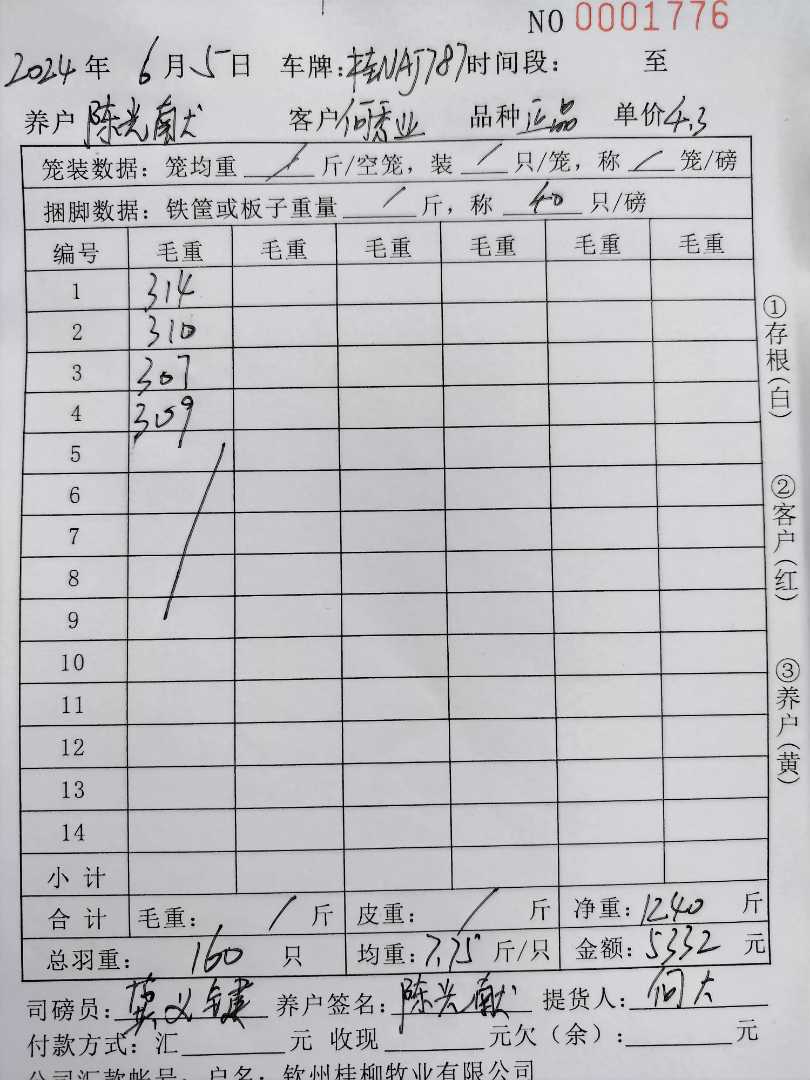 NO 0001776
2024年 6月5日 车牌:桂NAJ787时间段: 至
养户 陈光献 客户 何秀业 品种 正品 单价4.3
笼装数据:笼均重 / 斤/空笼,装 / 只/笼,称 / 笼/磅
捆脚数据:铁筐或板子重量 / 斤,称 40 只/磅
编号 毛重 毛重 毛重 毛重 毛重 毛重
1 314
2 310
3 307
4 309
5
6
7
8
9
10
11
12
13
14
小计
合计 毛重: / 斤 皮重: / 斤 净重:1240 斤
总羽重: 160 只 均重:7.75 斤/只 金额:5332 元
司磅员: 莫义键 养户签名:陈光献 提货人: 何大
付款方式:汇 元 收现 元欠(余): 元
公司汇款帐号:户名:钦州桂柳牧业有限公司
①存根(白)
②客户(红)
③养户(黄)